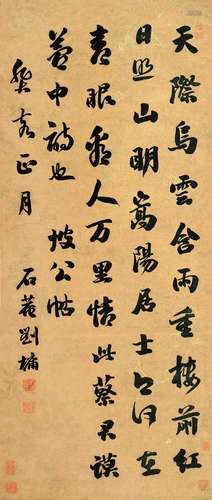 天際烏雲含雨重樓前紅
日照山明嵩陽居士今何在
青眼看人万里情此蔡君謨
夢中詩也 坡公帖
癸亥正月 石菴劉墉